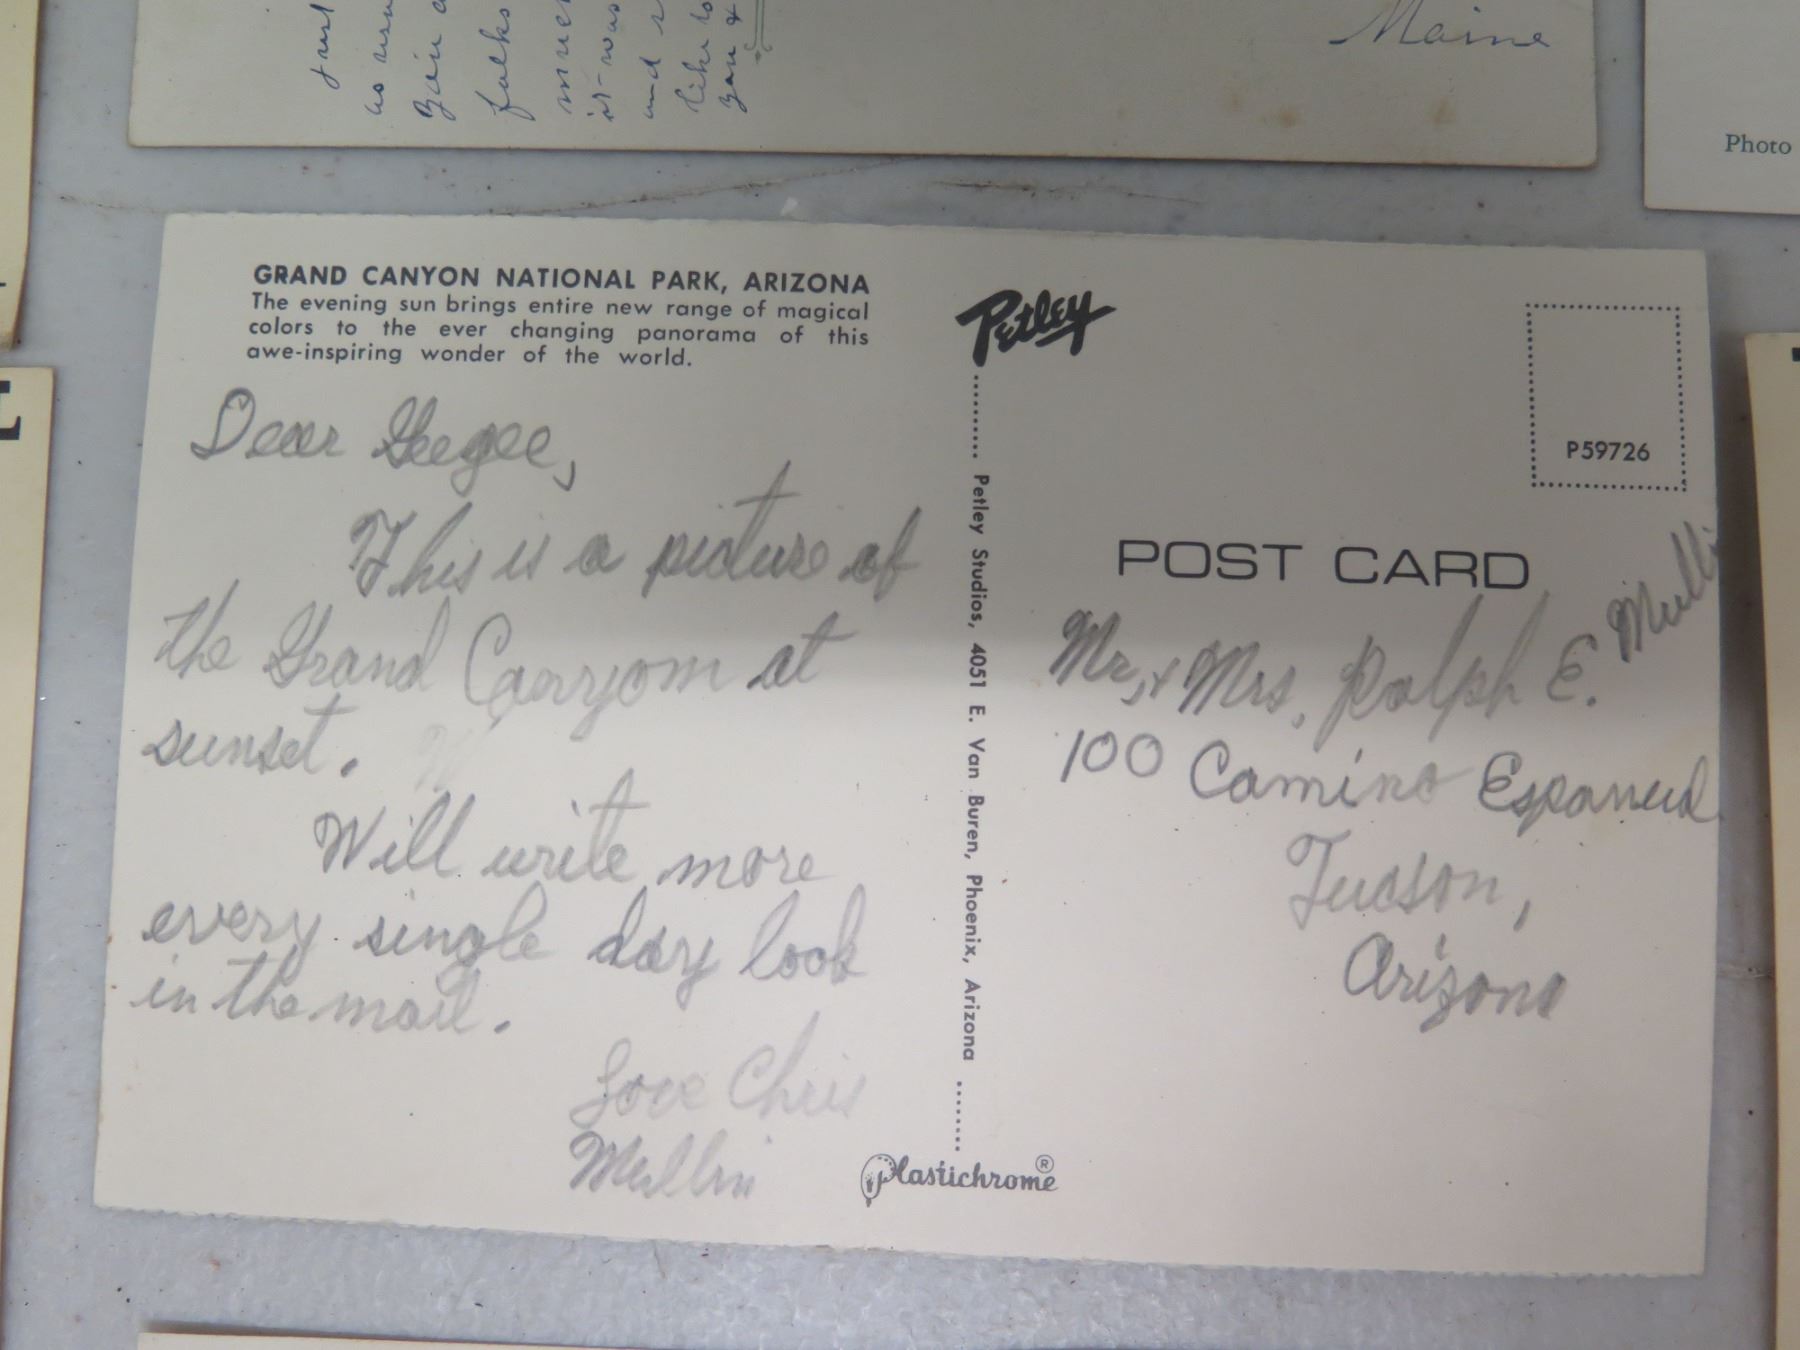 just
folks
and
like to
you &
Maine
Photo
GRAND CANYON NATIONAL PARK, ARIZONA
The evening sun brings entire new range of magical
colors to the ever changing panorama of this
awe-inspiring wonder of the world.
Dear Geegee,
This is a picture of
the Grand Canyon at
sunset.
Will write more
every single day look
in the mail.
Love Chris
Mullin
Petley
Petley Studios, 4051 E. Van Buren, Phoenix, Arizona
Plastichrome®
P59726
POST CARD
Mr, + Mrs, Ralph E. Mulli
100 Camino
Tucson,
Arizona